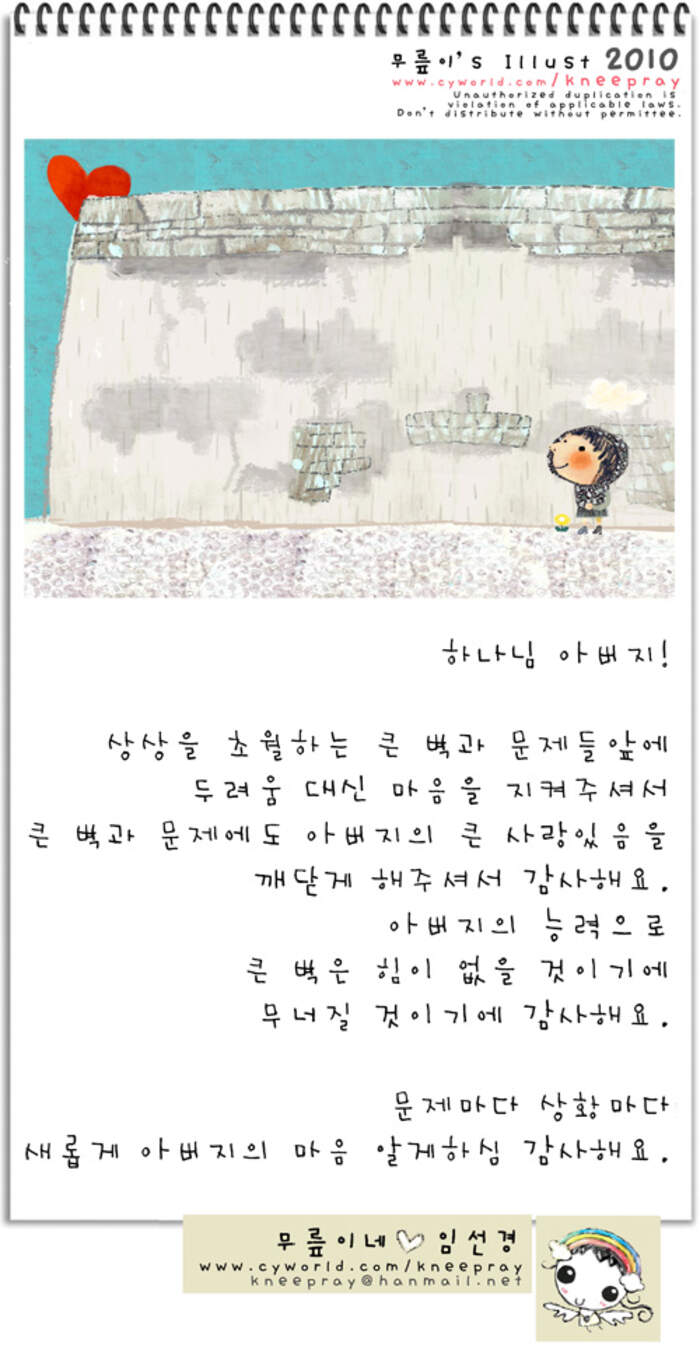 무릎이's Illust 2010
www.cyworld.com/kneepray
Unauthorized duplication is
violation of applicable laws.
Don't distribute without permittee.
하나님 아버지!
상상을 초월하는 큰 벽과 문제들앞에
두려움 대신 마음을 지켜주셔서
큰 벽과 문제에도 아버지의 큰 사랑있음을
깨닫게 해주셔서 감사해요.
아버지의 능력으로
큰 벽은 힘이 없을 것이기에
무너질 것이기에 감사해요.
문제마다 상황마다
새롭게 아버지의 마음 알게하심 감사해요.
무릎이네♡임선경
www.cyworld.com/kneepray
kneepray@hanmail.net